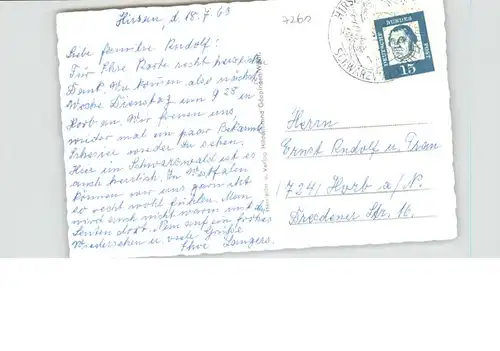 Hirsau, d. 18.7.63
7260
Liebe Familie Rudolf!
Für Ihre Karte recht herzlichen
Dank. Wir kommen also nächste
Woche Dienstag um 9 28 in
Horb an. Wir freuen uns,
wieder mal ein paar Bekannte
Schlesier wieder zu sehen.
Hier im Schwarzwald ist es
auch herrlich. In Westfalen
können wir uns garnicht
so recht wohl fühlen. Man
wird auch nicht warm mit den
Leuten dort. Nun auf ein frohes
Wiedersehen u. viele Grüße
Ihre Langers.
DEUTSCHE BUNDESPOST
15
Herrn
Ernst Rudolf u. Frau
724 / Horb a/N.
Dresdener Str. 16.